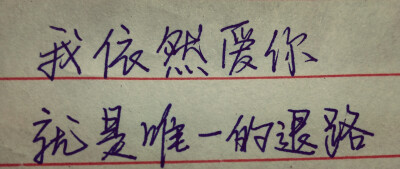 我依然爱你
就是唯一的退路